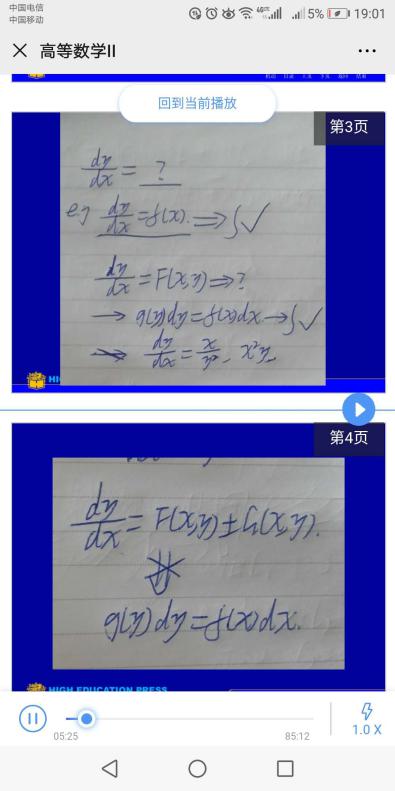 中国电信
中国移动
5% 19:01
高等数学II
回到当前播放
第3页
dy/dx = ?
e.g dy/dx = f(x). ⟹ ∫ ✓
dy/dx = F(x,y) ⟹ ?
→ g(y)dy = f(x)dx → ∫ ✓
第4页
dy/dx = F(x,y) ± G(x,y).
g(y)dy = f(x)dx.
HIGH EDUCATION PRESS
05:25
85:12
1.0 X